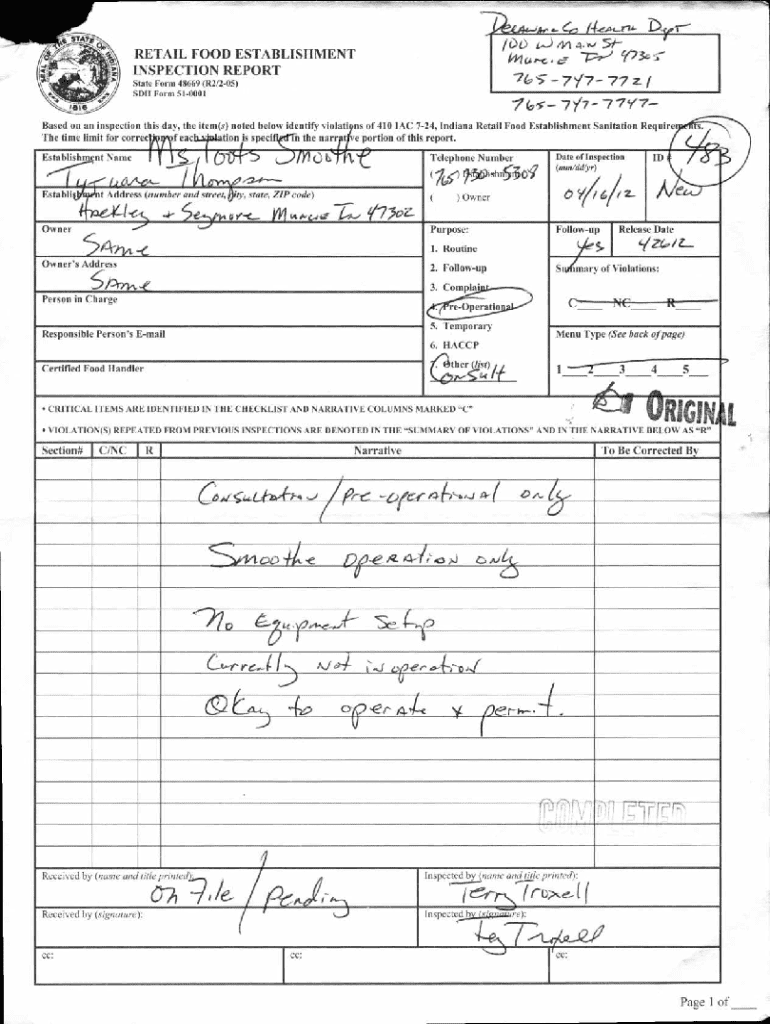 Delaware Co Health Dept
100 W Main St
Muncie In 47305
765-747-7721
765-747-7747
RETAIL FOOD ESTABLISHMENT
INSPECTION REPORT
State Form 48669 (R2/2-05)
SDH Form 51-0001
Based on an inspection this day, the item(s) noted below identify violations of 410 IAC 7-24, Indiana Retail Food Establishment Sanitation Requirements.
The time limit for correction of each violation is specified in the narrative portion of this report.
Establishment Name
Ms Toots Smoothe
Thompson
Telephone Number
( 765 ) Establishment
( ) Owner
Date of Inspection
(mm/dd/yr)
04/16/12
ID #
483
New
Establishment Address (number and street, city, state, ZIP code)
Hackley + Seymore Muncie In 47302
Owner
SAme
Purpose:
Follow-up
Yes
Release Date
42612
1. Routine
Owner's Address
SAme
2. Follow-up
Summary of Violations:
3. Complaint
Person in Charge
4. Pre-Operational
C____ NC____ R____
5. Temporary
Responsible Person's E-mail
Menu Type (See back of page)
6. HACCP
Certified Food Handler
7. Other (list)
Consult
1___2___3___4___5___
• CRITICAL ITEMS ARE IDENTIFIED IN THE CHECKLIST AND NARRATIVE COLUMNS MARKED "C"
ORIGINAL
• VIOLATION(S) REPEATED FROM PREVIOUS INSPECTIONS ARE DENOTED IN THE "SUMMARY OF VIOLATIONS" AND IN THE NARRATIVE BELOW AS "R"
Section# C/NC R Narrative To Be Corrected By
Consultation / Pre-operational only
Smoothe operation only
No Equipment Setup
Currently Not in operation
Okay to operate & permit.
COMPLETED
Received by (name and title printed):
On File / Pending
Inspected by (name and title printed):
Terry Troxell
Received by (signature):
Inspected by (signature):
Terry Troxell
cc: cc: cc:
Page 1 of ____